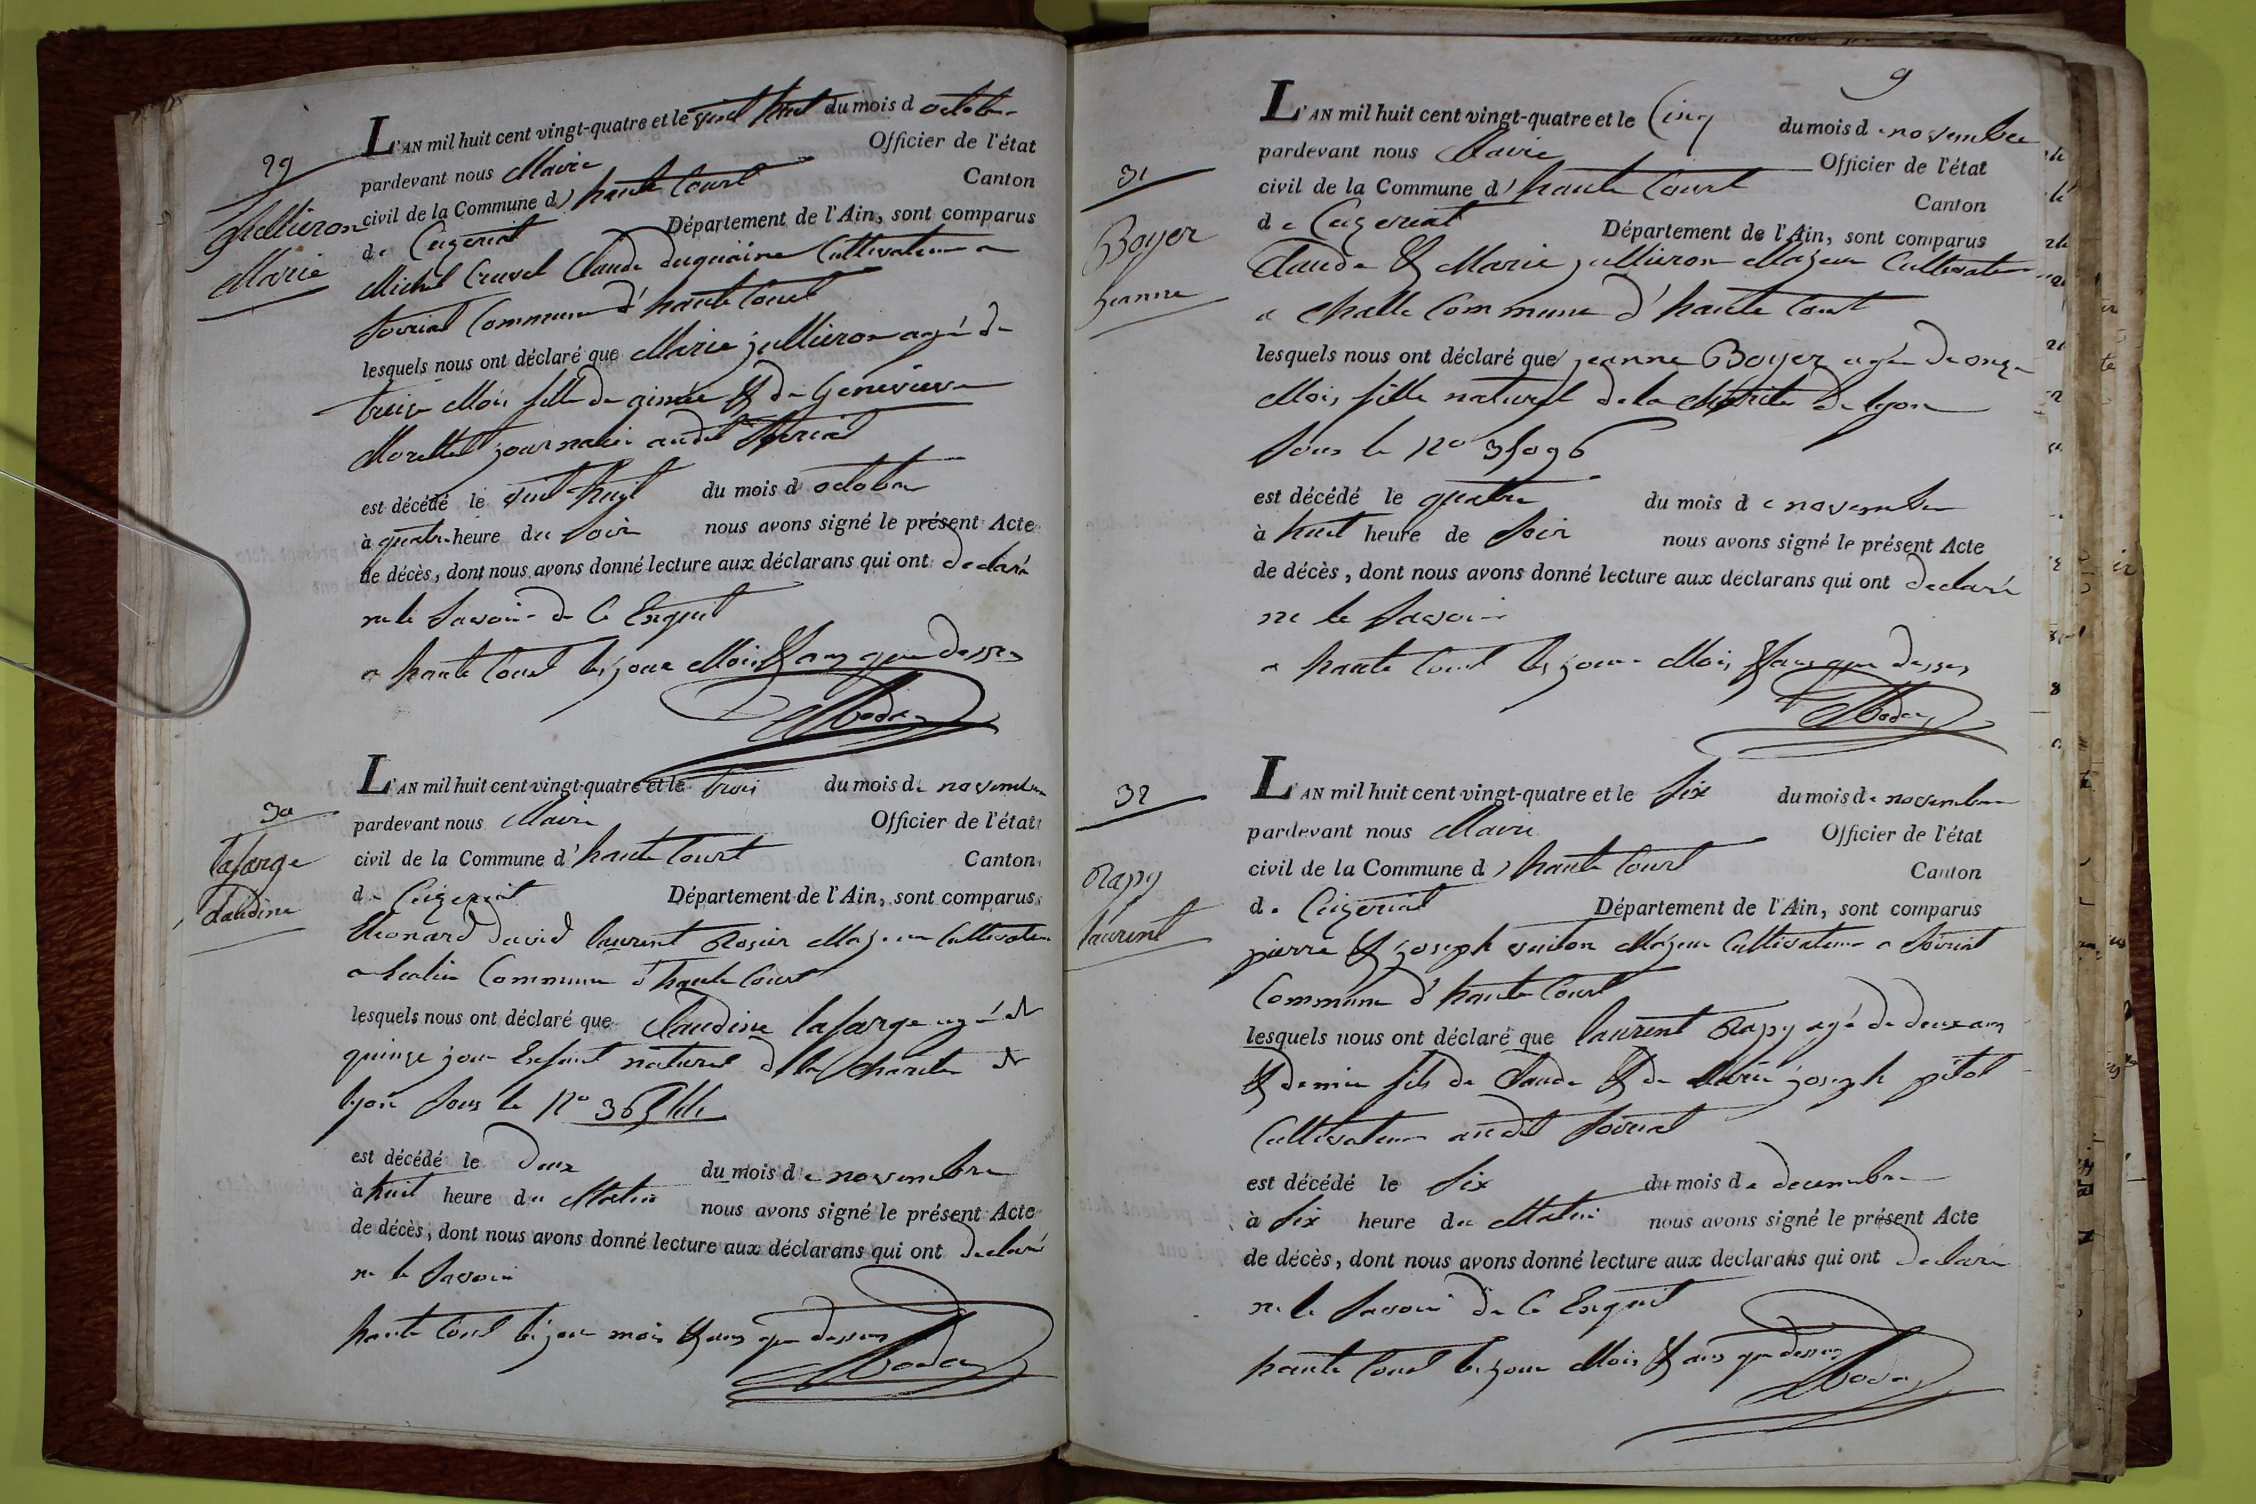 29
Jullieron
Marie
L'AN mil huit cent vingt-quatre et le vint huit du mois d octobre
pardevant nous Maire Officier de l'état
civil de la Commune d' haute Court Canton
de Ceizeriat Département de l'Ain, sont comparus
Michel Cruvel Claude duquaine Cultivateur a
Soiriat Commune d' haute Court
lesquels nous ont déclaré que Marie jullieron agé de
treize Mois fille de & de Genevieve
Morellet journalier audit Soiriat
est décédé le vint huit du mois d' octobre
à quatre heure du Soir nous avons signé le présent Acte
de décès, dont nous avons donné lecture aux déclarans qui ont declaré
ne le Savoir de Ce Enquit
a haute Court les jour Mois & an que dessus
30
lafarge
Claudine
L'AN mil huit cent vingt-quatre et le trois du mois de novembre
pardevant nous Maire Officier de l'état
civil de la Commune d' haute Court Canton
de Ceizeriat Département de l'Ain, sont comparus
Léonard david laurent Rosier Majeur Cultivateur
a Commune d'haute Court
lesquels nous ont déclaré que Claudine lafarge agé de
quinze jour Enfant naturel de la Charite de
lyon Sous le No
est décédé le deux du mois de novembre
à huit heure du Matin nous avons signé le présent Acte
de décès, dont nous avons donné lecture aux déclarans qui ont declaré
ne le Savoir
haute Court les jour mois & an que dessus
9
31
Boyer
jeanne
L'AN mil huit cent vingt-quatre et le Cinq du mois de novembre
pardevant nous Maire Officier de l'état
civil de la Commune d' haute Court Canton
de Ceizeriat Département de l'Ain, sont comparus
Claude & Marie jullieron Majeur Cultivateur
a Challe Commune d' haute Court
lesquels nous ont déclaré que jeanne Boyer agée de onze
Mois fille naturel de la Charite de lyon
Sous le No 35096
est décédé le quatre du mois de novembre
à huit heure de Soir nous avons signé le présent Acte
de décès, dont nous avons donné lecture aux déclarans qui ont declaré
ne le Savoir
a haute Court les jour Mois & an que dessus
32
Rapy
laurent
L'AN mil huit cent vingt-quatre et le Six du mois de novembre
pardevant nous Maire Officier de l'état
civil de la Commune d' haute Court Canton
de Ceizeriat Département de l'Ain, sont comparus
pierre & joseph vuiton Majeur Cultivateur a Soiriat
Commune d' haute Court
lesquels nous ont déclaré que laurent Rapy agé de deux ans
& demie fils de Claude & de Marie joseph pitol
Cultivateur audit Soiriat
est décédé le Six du mois de decembre
à Six heure du Matin nous avons signé le présent Acte
de décès, dont nous avons donné lecture aux déclarans qui ont declaré
ne le Savoir de Ce Enquit
haute Court les jour Mois & ans que dessus